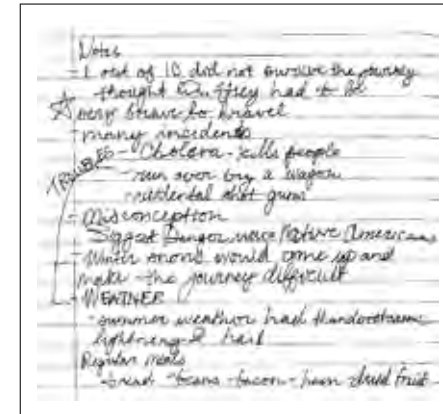 Notes
- 1 out of 10 did not survive the journey
thought they had to be
very brave to travel
- many incidents
TROUBLES - Cholera - kills people
- run over by a wagon
- accidental shot guns
- Misconception
Biggest Danger were Native Americans
- Winter snows would come up and
make the journey difficult
- WEATHER
- summer weather had thunderstorms
lightning & hail
Regular meals
- bread - beans - bacon - ham - dried fruit